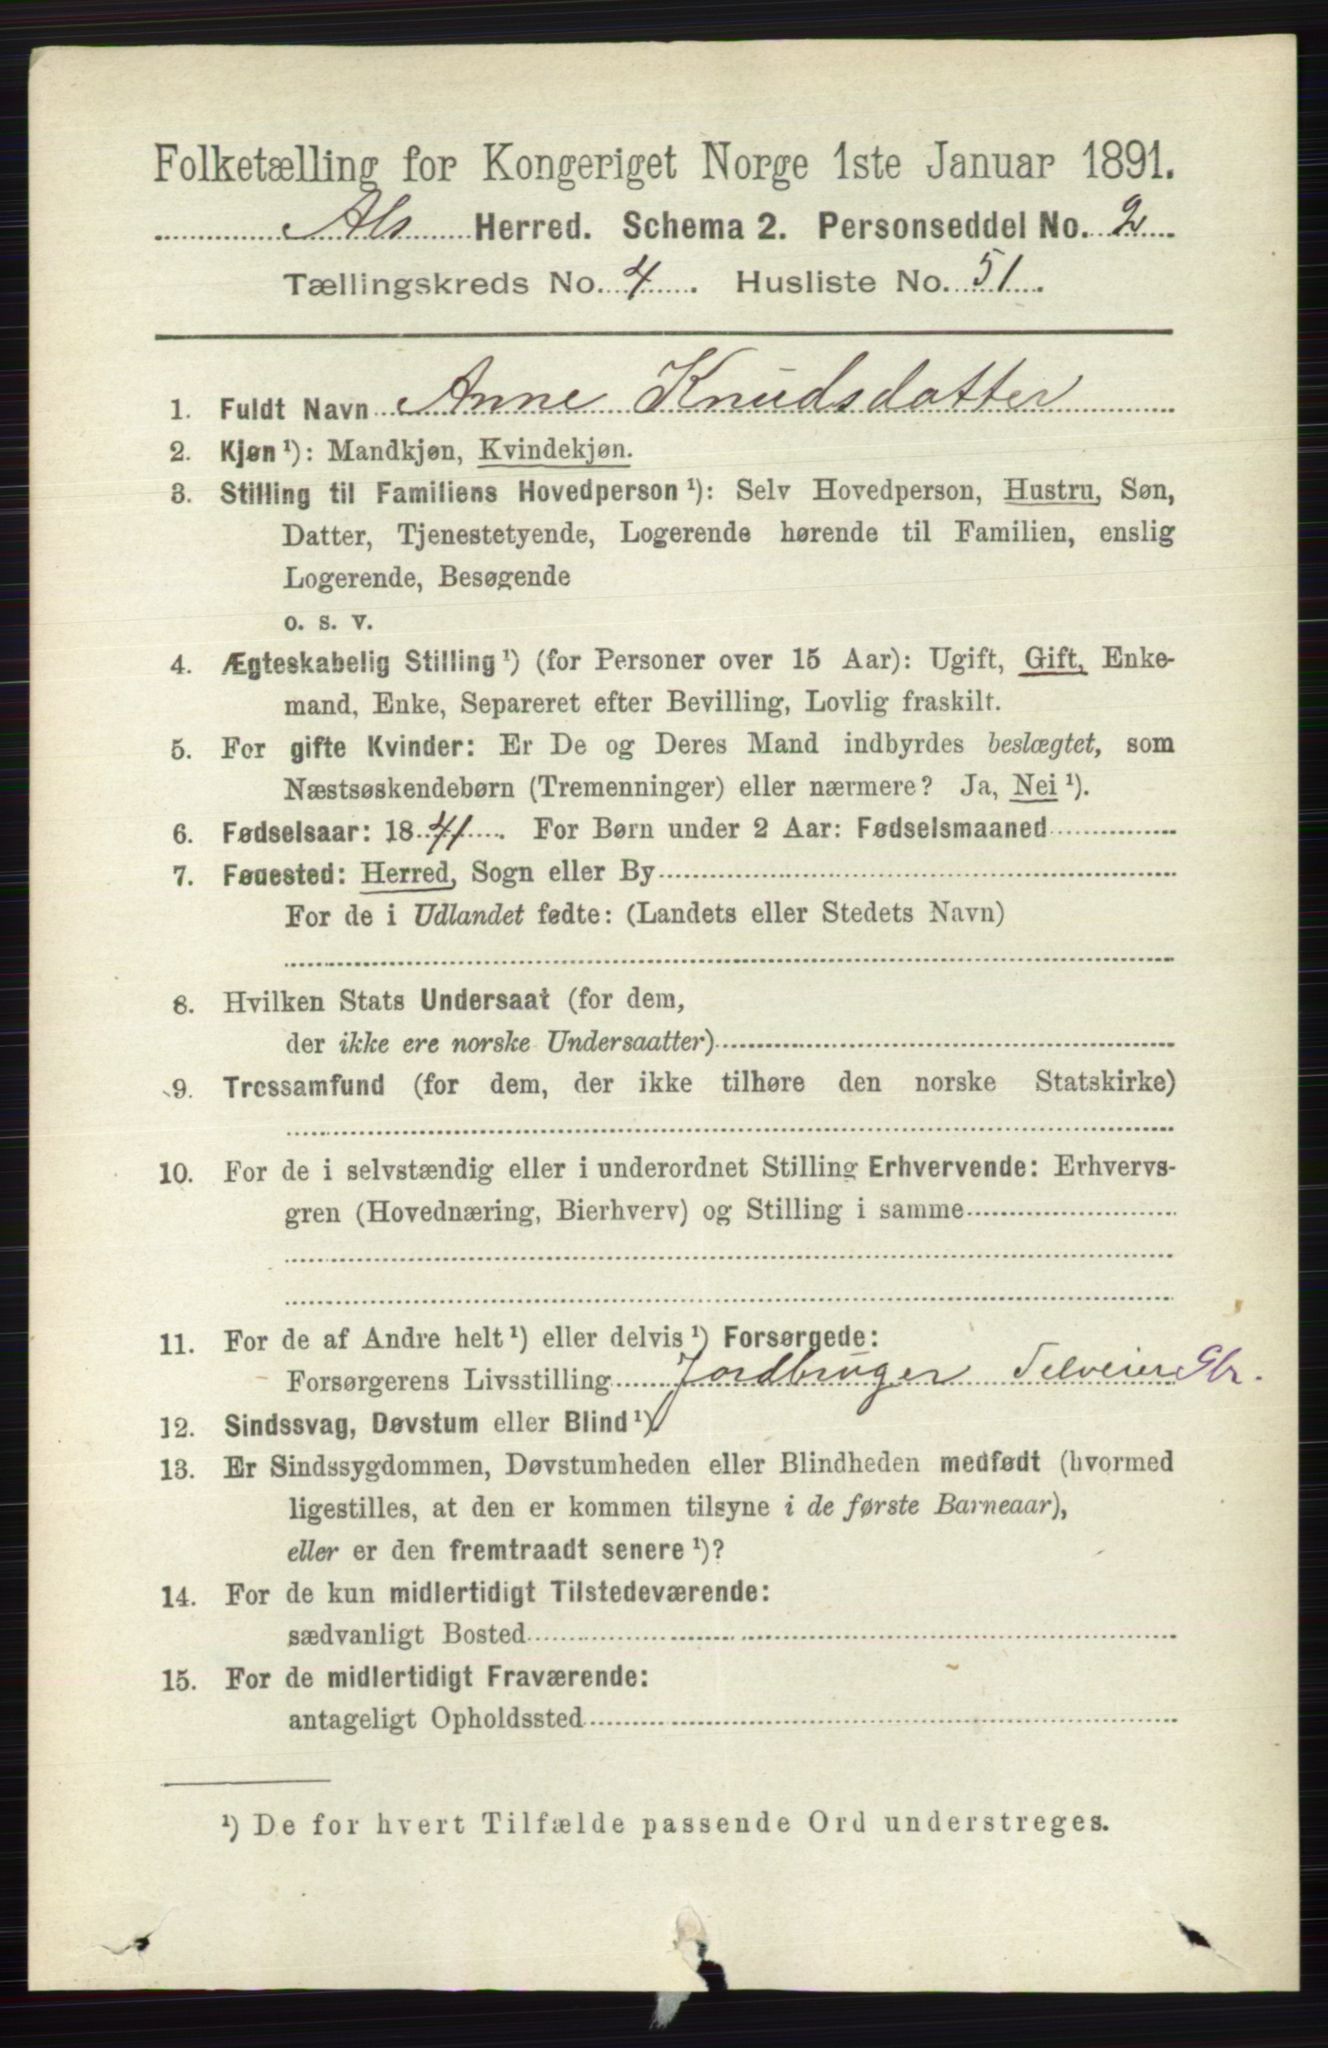 Folketælling for Kongeriget Norge 1ste Januar 1891.
Als Herred. Schema 2. Personseddel No. 2
Tællingskreds No. 4. Husliste No. 51.
1. Fuldt Navn Anne Knudsdatter
2. Kjøn ¹): Mandkjøn, Kvindekjøn.
3. Stilling til Familiens Hovedperson ¹): Selv Hovedperson, Hustru, Søn,
Datter, Tjenestetyende, Logerende hørende til Familien, enslig
Logerende, Besøgende
o. s. v.
4. Ægteskabelig Stilling ¹) (for Personer over 15 Aar): Ugift, Gift, Enke-
mand, Enke, Separeret efter Bevilling, Lovlig fraskilt.
5. For gifte Kvinder: Er De og Deres Mand indbyrdes beslægtet, som
Næstsøskendebørn (Tremenninger) eller nærmere? Ja, Nei ¹).
6. Fødselsaar: 1841. For Børn under 2 Aar: Fødselsmaaned
7. Føuested: Herred, Sogn eller By
For de i Udlandet fødte: (Landets eller Stedets Navn)
8. Hvilken Stats Undersaat (for dem,
der ikke ere norske Undersaatter)
9. Trossamfund (for dem, der ikke tilhøre den norske Statskirke)
10. For de i selvstændig eller i underordnet Stilling Erhvervende: Erhvervs-
gren (Hovednæring, Bierhverv) og Stilling i samme
11. For de af Andre helt ¹) eller delvis ¹) Forsørgede:
Forsørgerens Livsstilling Jordbruger Selveier Gbr.
12. Sindssvag, Døvstum eller Blind ¹).
13. Er Sindssygdommen, Døvstumheden eller Blindheden medfødt (hvormed
ligestilles, at den er kommen tilsyne i de første Barneaar),
eller er den fremtraadt senere ¹)?
14. For de kun midlertidigt Tilstedeværende:
sædvanligt Bosted
15. For de midlertidigt Fraværende:
antageligt Opholdssted
¹) De for hvert Tilfælde passende Ord understreges.